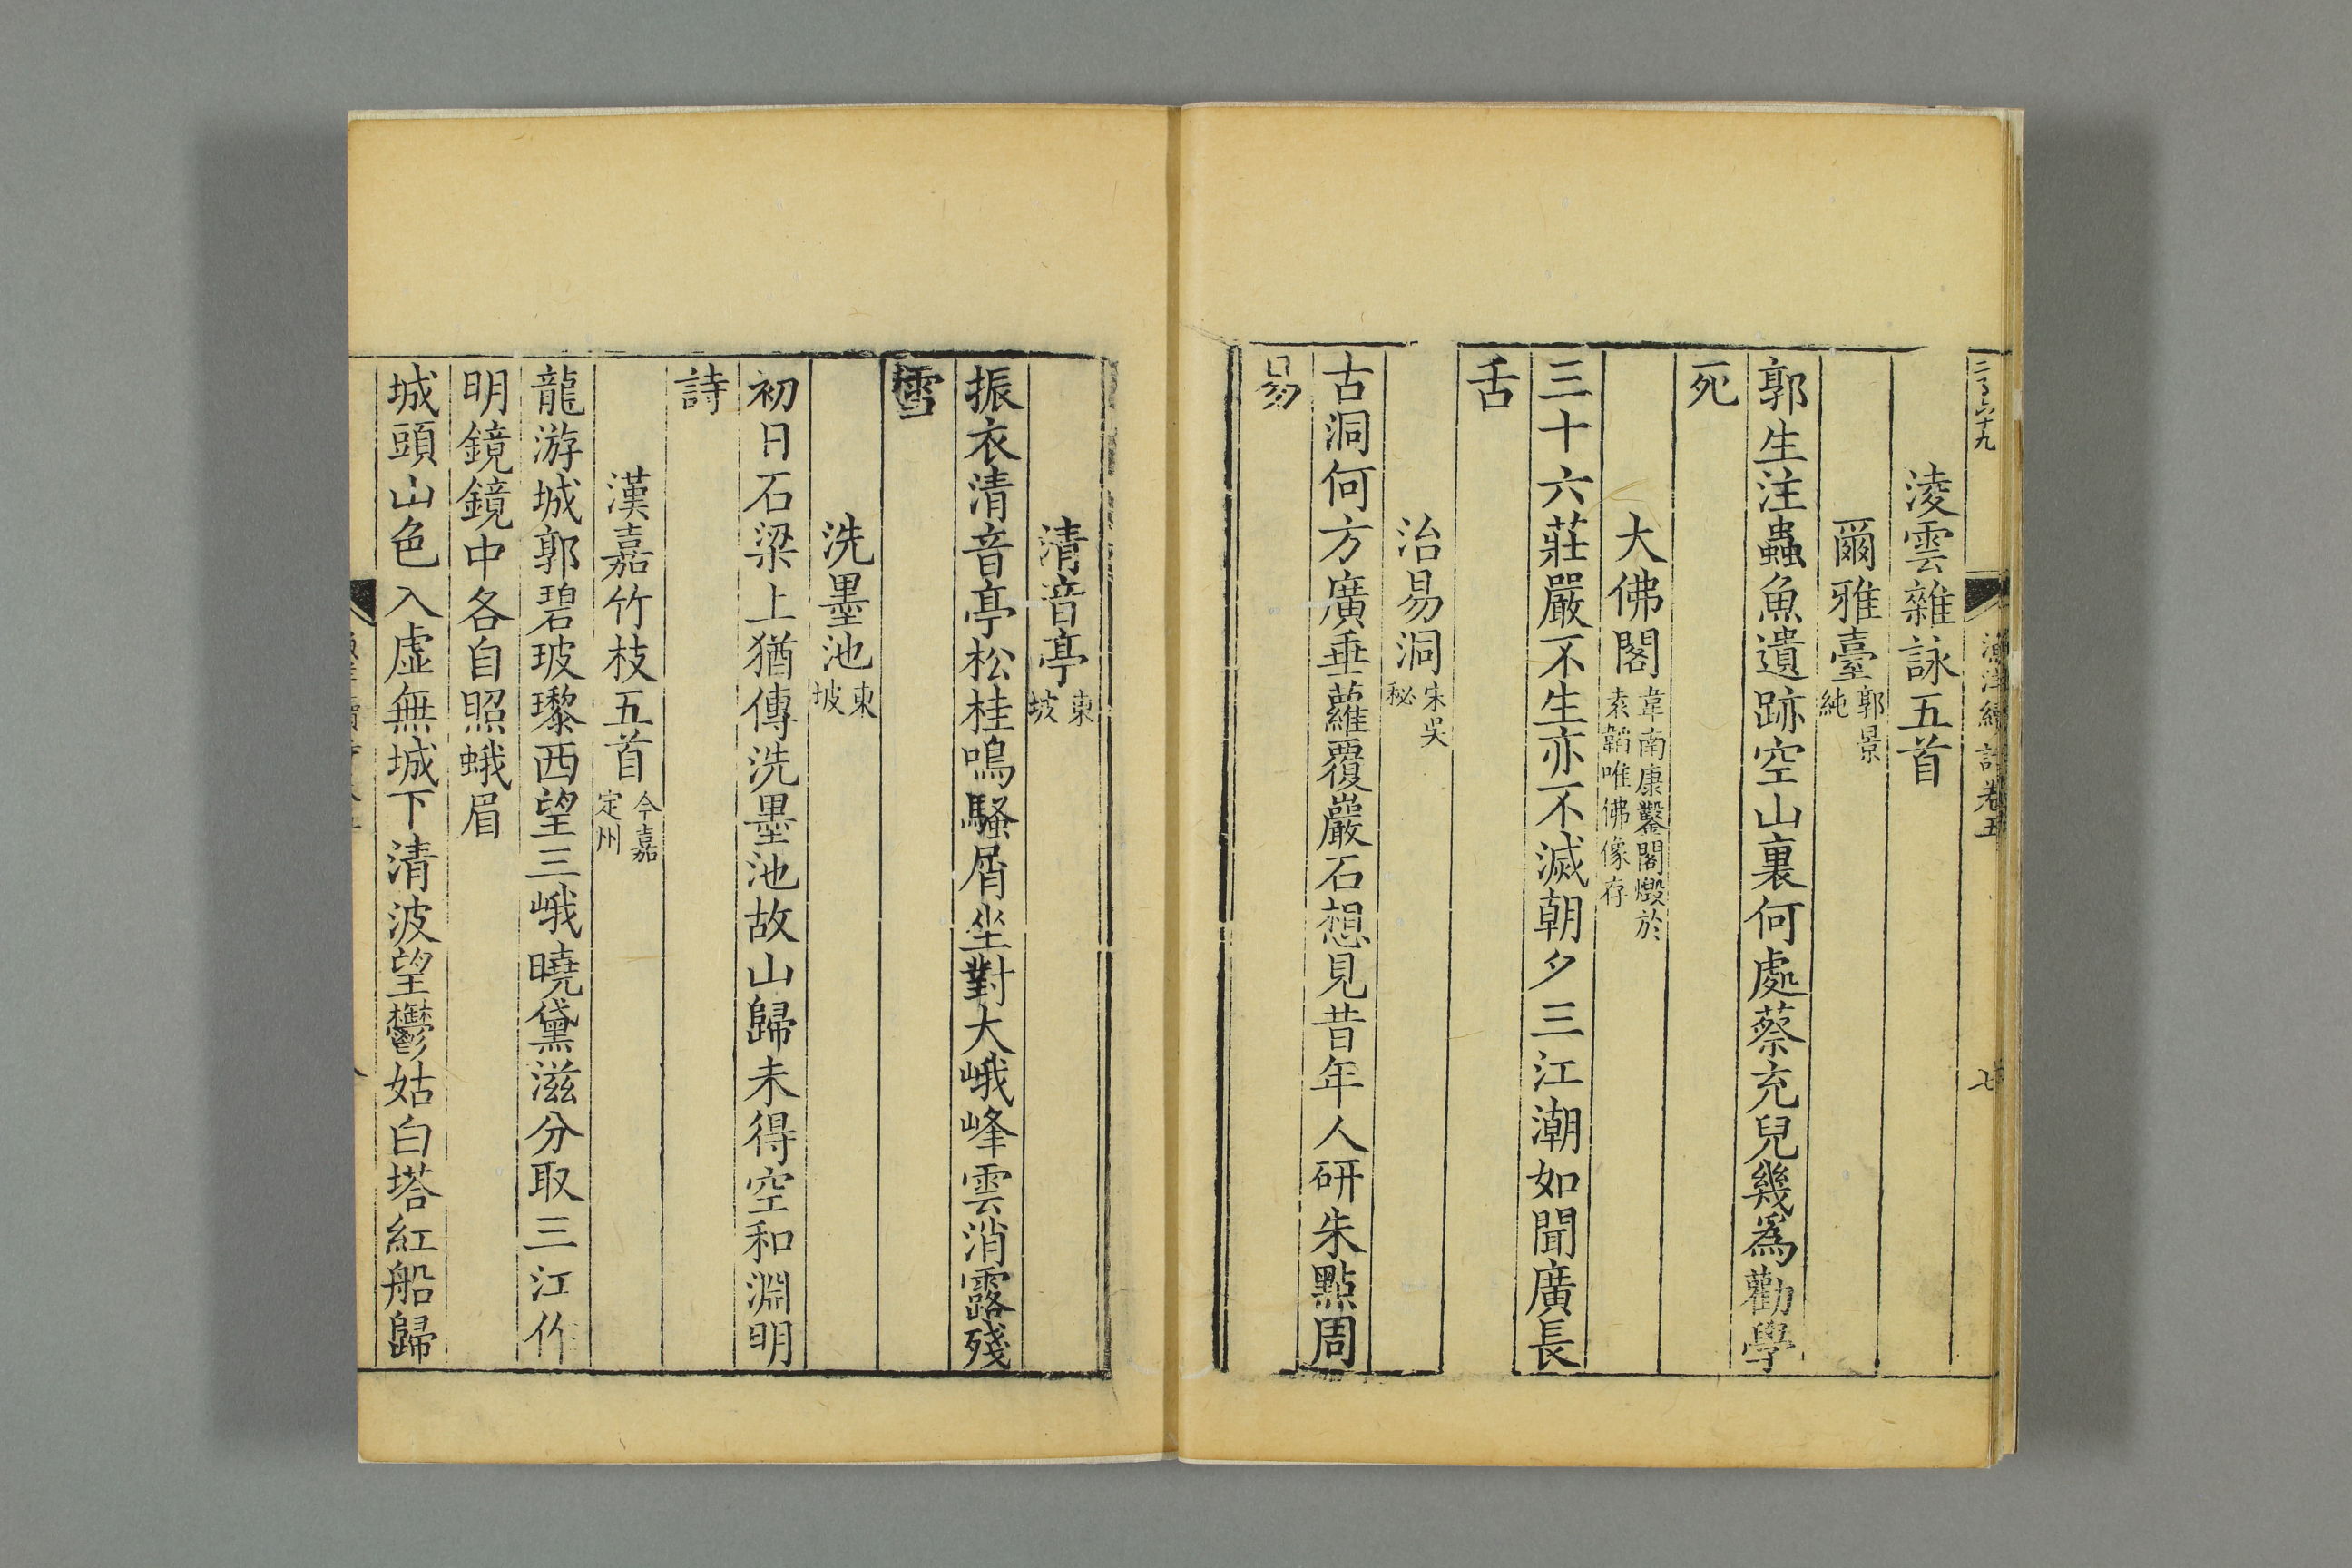 二百六十九
漁洋續詩卷五
七
淩雲雜詠五首
爾雅臺郭景純
郭生注蟲魚遺跡空山裏何處蔡充兒幾為勸學
死
大佛閣韋南康鑿閣燬於袁韜唯佛像存
三十六莊嚴不生亦不滅朝夕三江潮如聞廣長
舌
治易洞宋吳秘
古洞何方廣垂蘿覆巖石想見昔年人研朱點周
易
清音亭東坡
振衣清音亭松桂鳴騷屑坐對大峨峰雲消露殘
雪
洗墨池東坡
初日石梁上猶傳洗墨池故山歸未得空和淵明
詩
漢嘉竹枝五首今嘉定州
龍游城郭碧玻瓈西望三峨曉黛滋分取三江作
明鏡鏡中各自照蛾眉
城頭山色入虛無城下清波望鬱姑白塔紅船歸